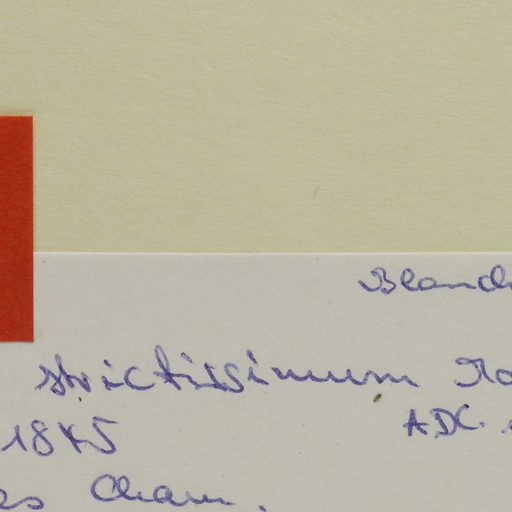 Blanch
strictissimum Ro
1845 ADC.
es Cham.